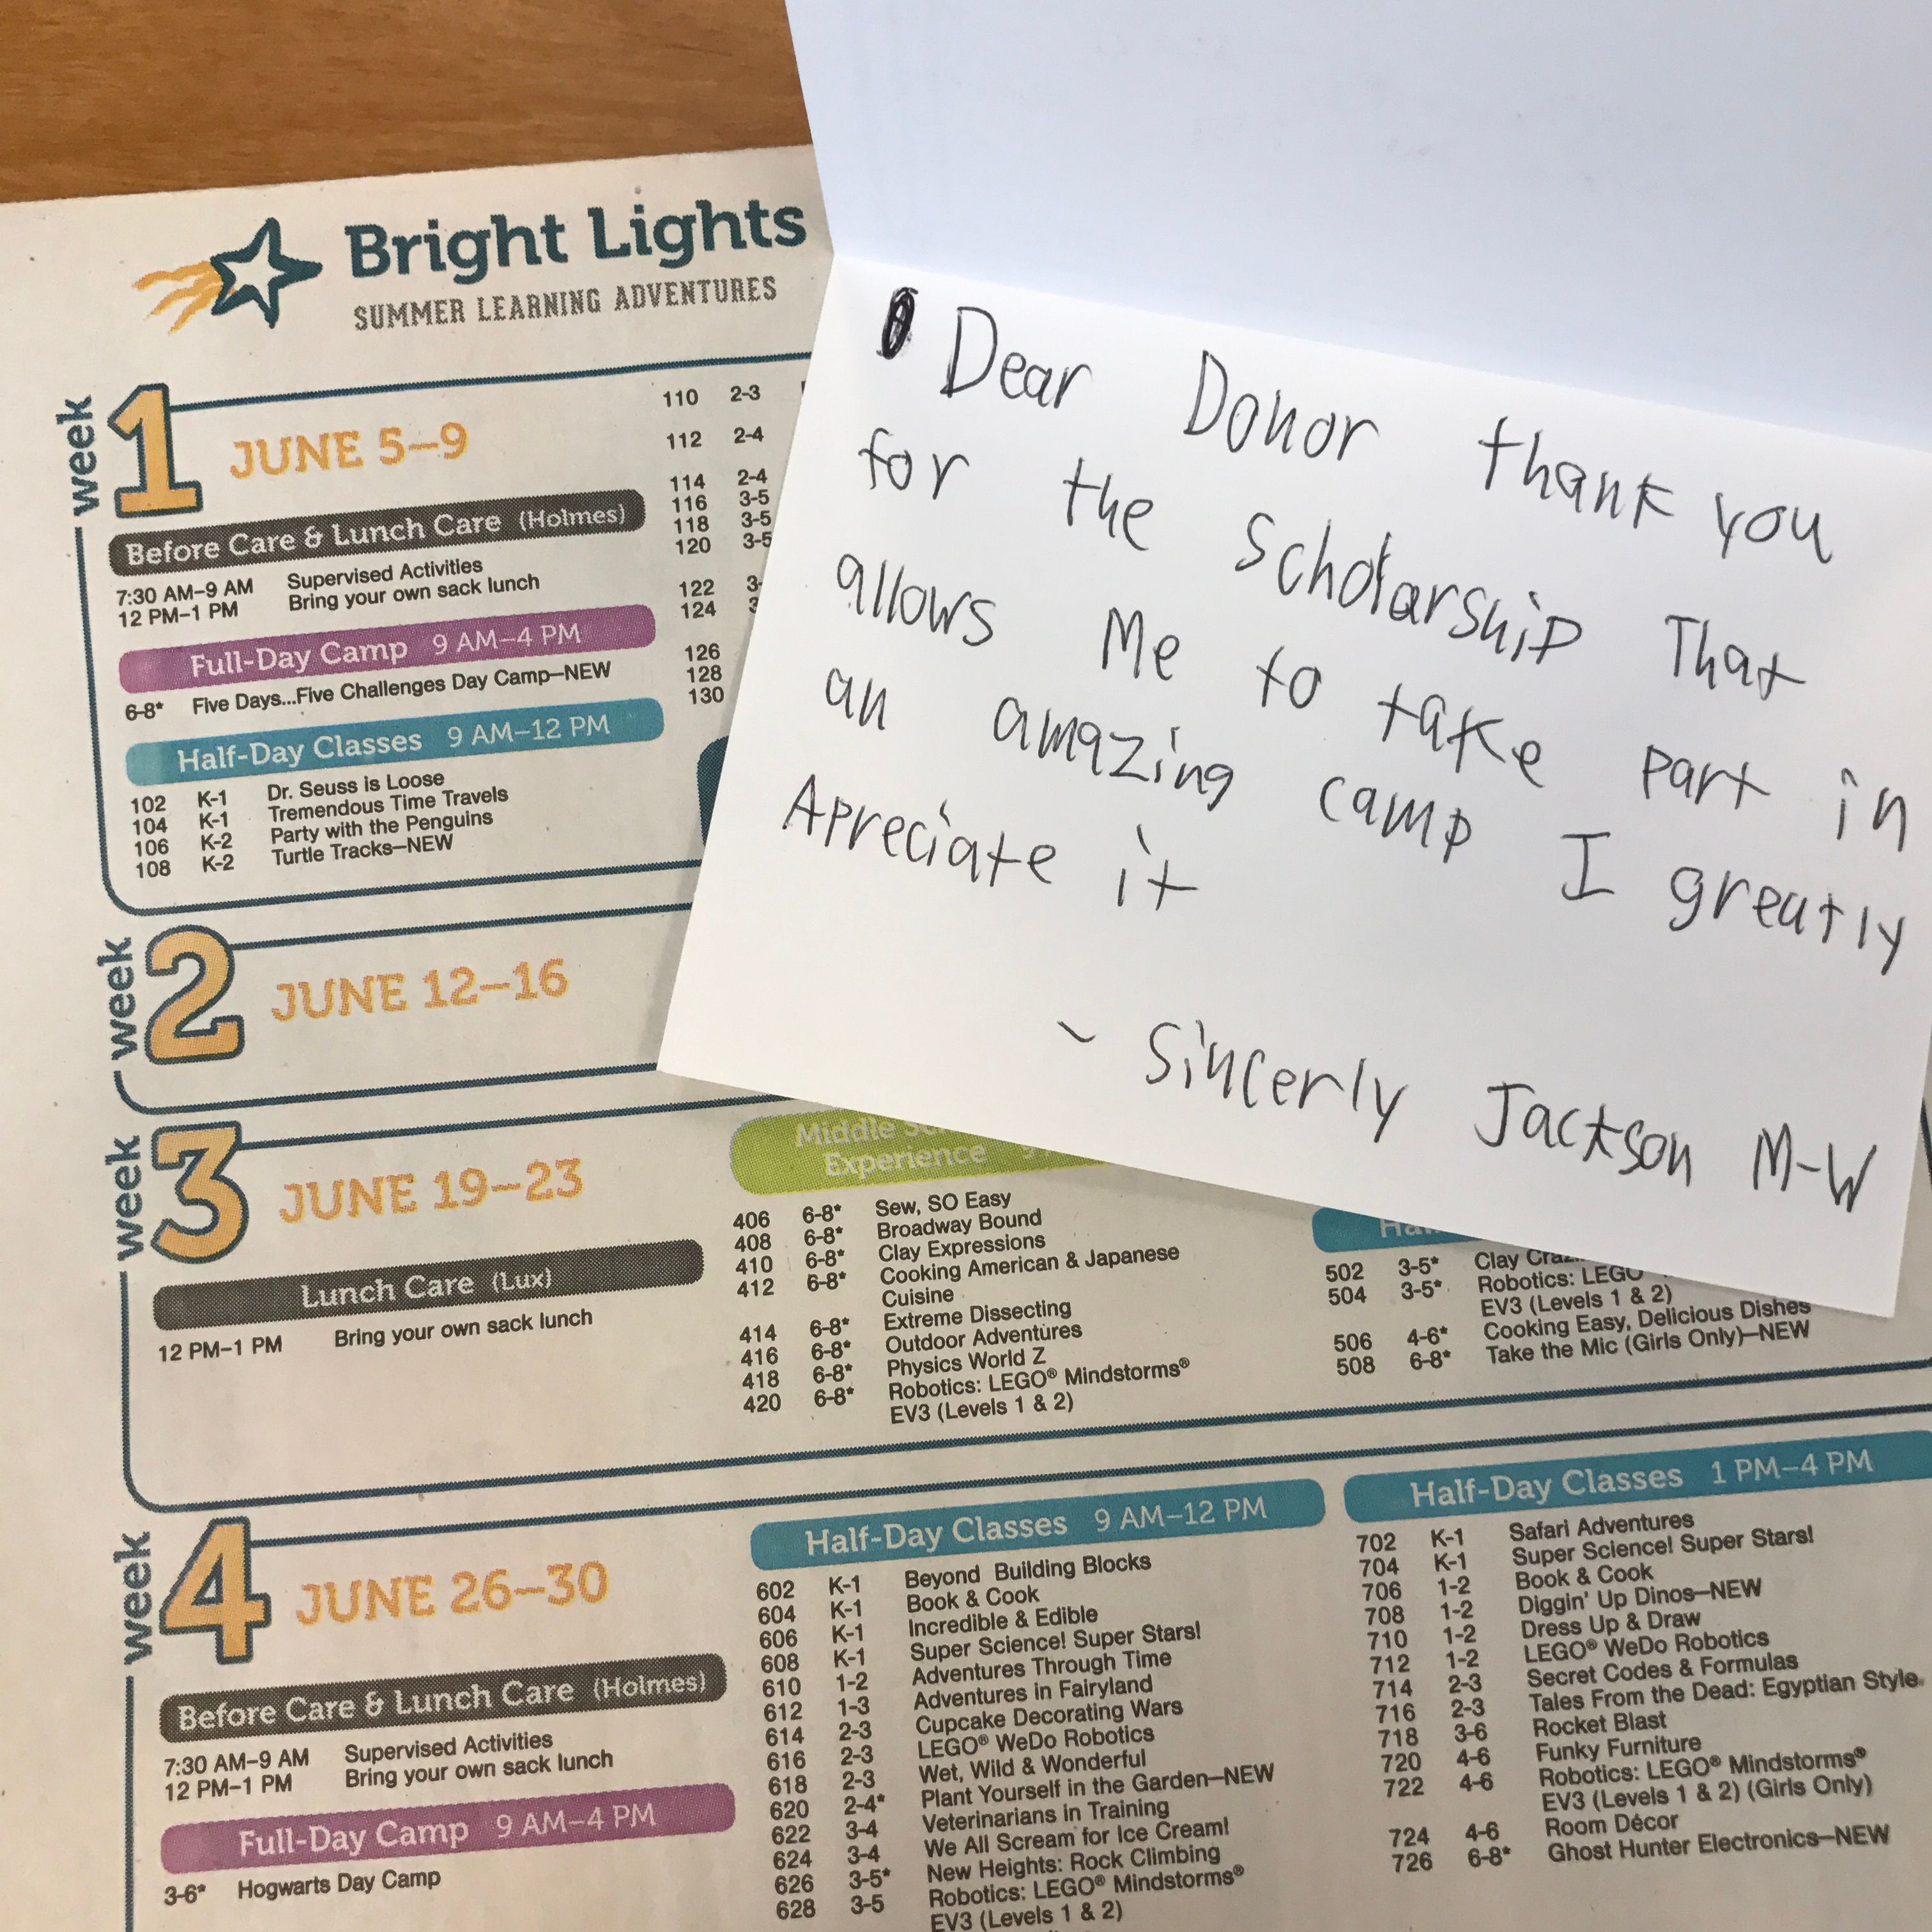 Bright Lights
SUMMER LEARNING ADVENTURES
week 1
JUNE 5–9
Before Care & Lunch Care (Holmes)
7:30 AM–9 AM Supervised Activities
12 PM–1 PM Bring your own sack lunch
Full-Day Camp 9 AM–4 PM
6-8* Five Days...Five Challenges Day Camp–NEW
Half-Day Classes 9 AM–12 PM
102 K-1 Dr. Seuss is Loose
104 K-1 Tremendous Time Travels
106 K-2 Party with the Penguins
108 K-2 Turtle Tracks–NEW
110 2-3
112 2-4
114 2-4
116 3-5
118 3-5
120 3-5
122
124
126
128
130
Dear Donor thank you
for the scholarship That
allows Me to take part in
an amazing camp I greatly
Apreciate it
~ Sincerly Jackson M-W
week 2
JUNE 12–16
week 3
JUNE 19–23
Lunch Care (Lux)
12 PM–1 PM Bring your own sack lunch
Middle
Experience
406 6-8* Sew, SO Easy
408 6-8* Broadway Bound
410 6-8* Clay Expressions
412 6-8* Cooking American & Japanese
Cuisine
414 6-8* Extreme Dissecting
416 6-8* Outdoor Adventures
418 6-8* Physics World Z
420 6-8* Robotics: LEGO® Mindstorms®
EV3 (Levels 1 & 2)
502 3-5* Clay
504 3-5* Robotics: LEGO
EV3 (Levels 1 & 2)
506 4-6* Cooking Easy, Delicious Dishes
508 6-8* Take the Mic (Girls Only)–NEW
week 4
JUNE 26–30
Before Care & Lunch Care (Holmes)
7:30 AM–9 AM Supervised Activities
12 PM–1 PM Bring your own sack lunch
Full-Day Camp 9 AM–4 PM
3-6* Hogwarts Day Camp
Half-Day Classes 9 AM–12 PM
602 K-1 Beyond Building Blocks
604 K-1 Book & Cook
606 K-1 Incredible & Edible
608 K-1 Super Science! Super Stars!
610 1-2 Adventures Through Time
612 1-3 Adventures in Fairyland
614 2-3 Cupcake Decorating Wars
616 2-3 LEGO® WeDo Robotics
618 2-3 Wet, Wild & Wonderful
620 2-4* Plant Yourself in the Garden–NEW
622 3-4 Veterinarians in Training
624 3-4 We All Scream for Ice Cream!
626 3-5* New Heights: Rock Climbing
628 3-5 Robotics: LEGO® Mindstorms®
EV3 (Levels 1 & 2)
Half-Day Classes 1 PM–4 PM
702 K-1 Safari Adventures
704 K-1 Super Science! Super Stars!
706 1-2 Book & Cook
708 1-2 Diggin' Up Dinos–NEW
710 1-2 Dress Up & Draw
712 1-2 LEGO® WeDo Robotics
714 2-3 Secret Codes & Formulas
716 2-3 Tales From the Dead: Egyptian Style
718 3-6 Rocket Blast
720 4-6 Funky Furniture
722 4-6 Robotics: LEGO® Mindstorms®
EV3 (Levels 1 & 2) (Girls Only)
724 4-6 Room Décor
726 6-8* Ghost Hunter Electronics–NEW